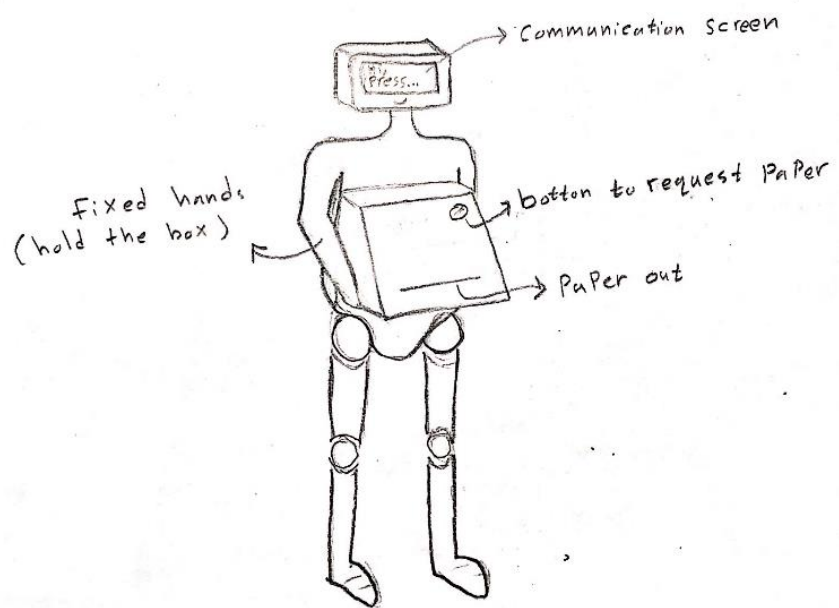 Communication screen
Press...
fixed hands
(hold the box)
botton to request PaPer
PaPer out